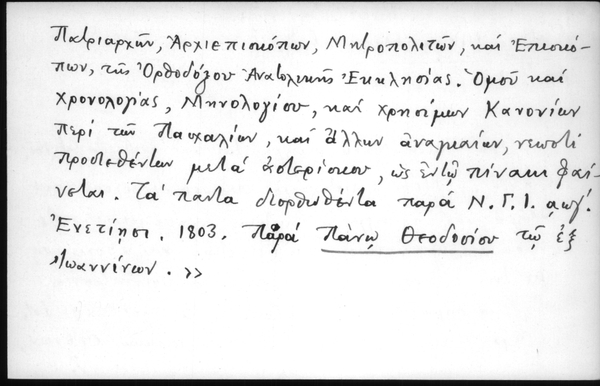 Πατριαρχῶν, Ἀρχιεπισκόπων, Μητροπολιτῶν, καὶ Ἐπισκό-
πων, τῆς Ὀρθοδόξου Ἀνατολικῆς Ἐκκλησίας. Ὁμοῦ καὶ
Χρονολογίας, Μηνολογίου, καὶ χρησίμων Κανονίων
περὶ τῶν Πασχαλίων, καὶ ἄλλων ἀναγκαίων, νεωστὶ
προστεθέντων μετὰ ἀστερίσκου, ὡς ἐν τῷ πίνακι φαί-
νεται. Τὰ πάντα διορθωθέντα παρὰ Ν. Γ. Ι. αωγ΄.
Ἐνετίῃσι. 1803. Παρὰ Πάνῳ Θεοδοσίου τῷ ἐξ
Ἰωαννίνων. >>